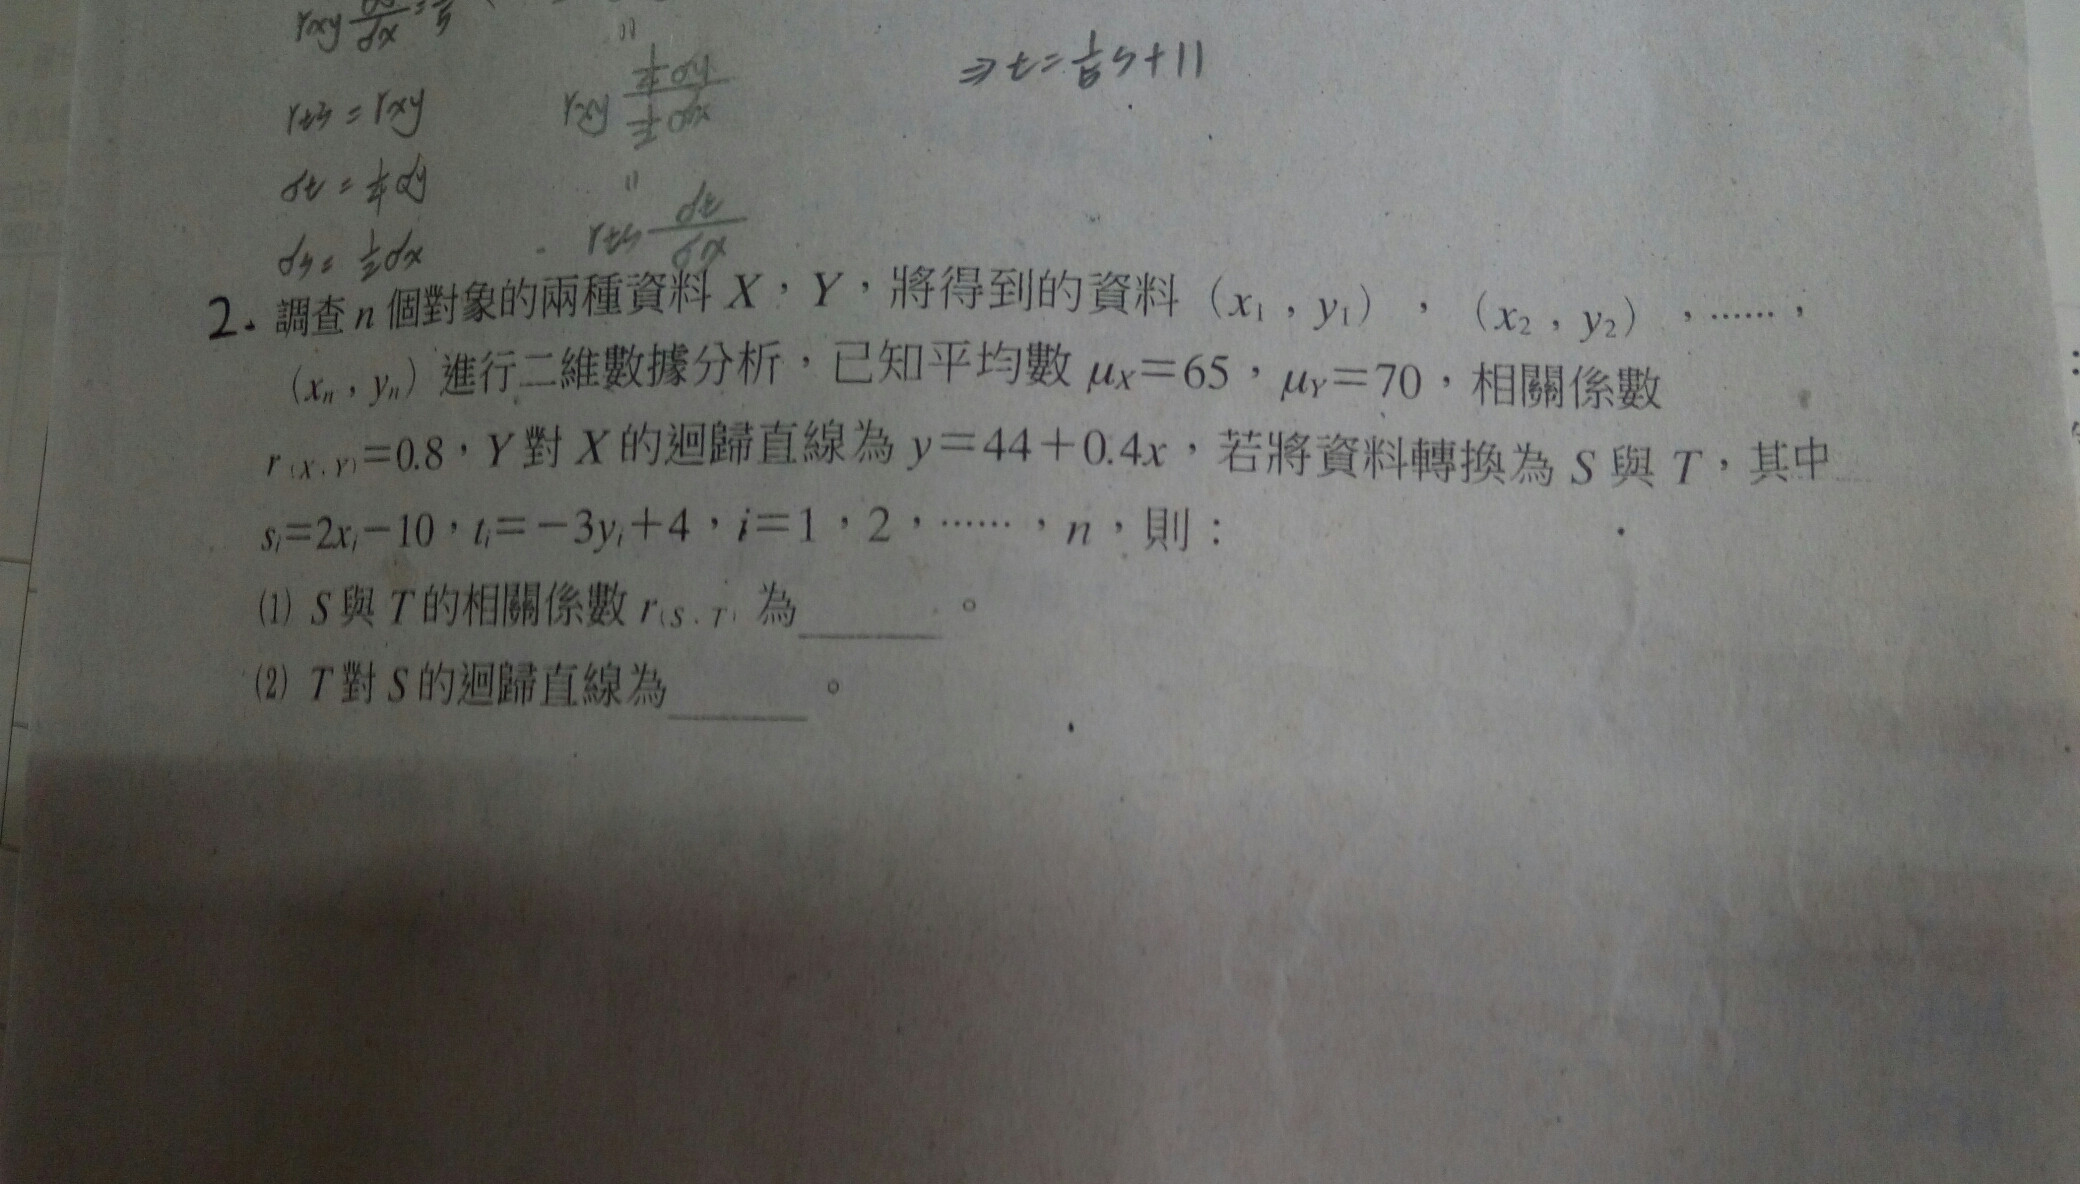 rxy
⇒ t = 1/5 s + 11
rts = rxy
rxy
σt = 1/4 σy
rts σt/σx
σs = 1/2 σx
2. 調查 n 個對象的兩種資料 X，Y，將得到的資料（x₁，y₁），（x₂，y₂），……，
（xₙ，yₙ）進行二維數據分析，已知平均數 μX＝65，μY＝70，相關係數
r(X，Y)＝0.8，Y 對 X 的迴歸直線為 y＝44＋0.4x，若將資料轉換為 S 與 T，其中
sᵢ＝2xᵢ－10，tᵢ＝－3yᵢ＋4，i＝1，2，……，n，則：
⑴ S 與 T 的相關係數 r(S，T) 為______。
⑵ T 對 S 的迴歸直線為______。